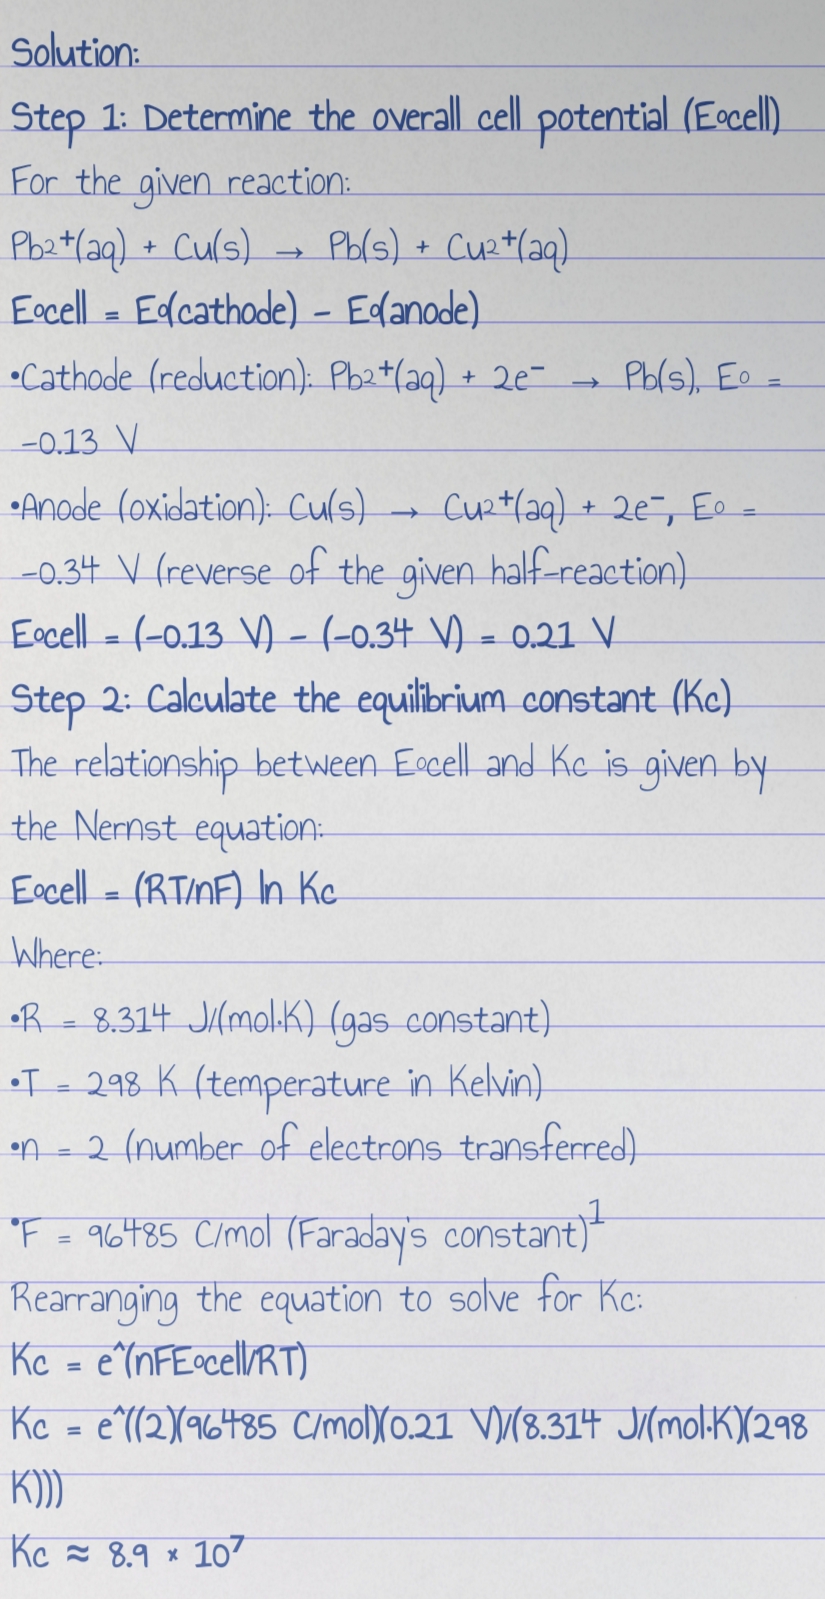 Solution:
Step 1: Determine the overall cell potential (Eocell)
For the given reaction:
Pb2+(aq) + Cu(s) → Pb(s) + Cu2+(aq)
Eocell = Eo(cathode) – Eo(anode)
•Cathode (reduction): Pb2+(aq) + 2e⁻ → Pb(s), Eo =
-0.13 V
•Anode (oxidation): Cu(s) → Cu2+(aq) + 2e⁻, Eo =
-0.34 V (reverse of the given half-reaction)
Eocell = (-0.13 V) – (-0.34 V) = 0.21 V
Step 2: Calculate the equilibrium constant (Kc)
The relationship between Eocell and Kc is given by
the Nernst equation:
Eocell = (RT/nF) ln Kc
Where:
•R = 8.314 J/(mol·K) (gas constant)
•T = 298 K (temperature in Kelvin)
•n = 2 (number of electrons transferred)
•F = 96485 C/mol (Faraday's constant)¹
Rearranging the equation to solve for Kc:
Kc = e^(nFEocell/RT)
Kc = e^((2)(96485 C/mol)(0.21 V)/(8.314 J/(mol·K)(298
K)))
Kc ≈ 8.9 × 10⁷